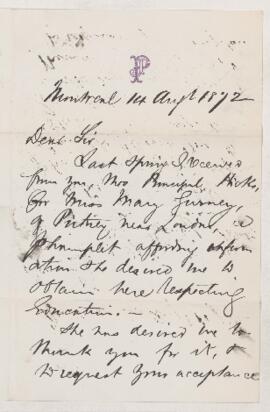 P
Montreal 14 Augt 1872
Dear Sir
Last Spring I received
from you, thro Principal Hicks,
for Miss Mary Gurney
of Putney near London, a
Pamphlet affording inform
ation she desired me to
obtain here respecting
Education. —
She has desired me to
thank you for it, &
to request your acceptance